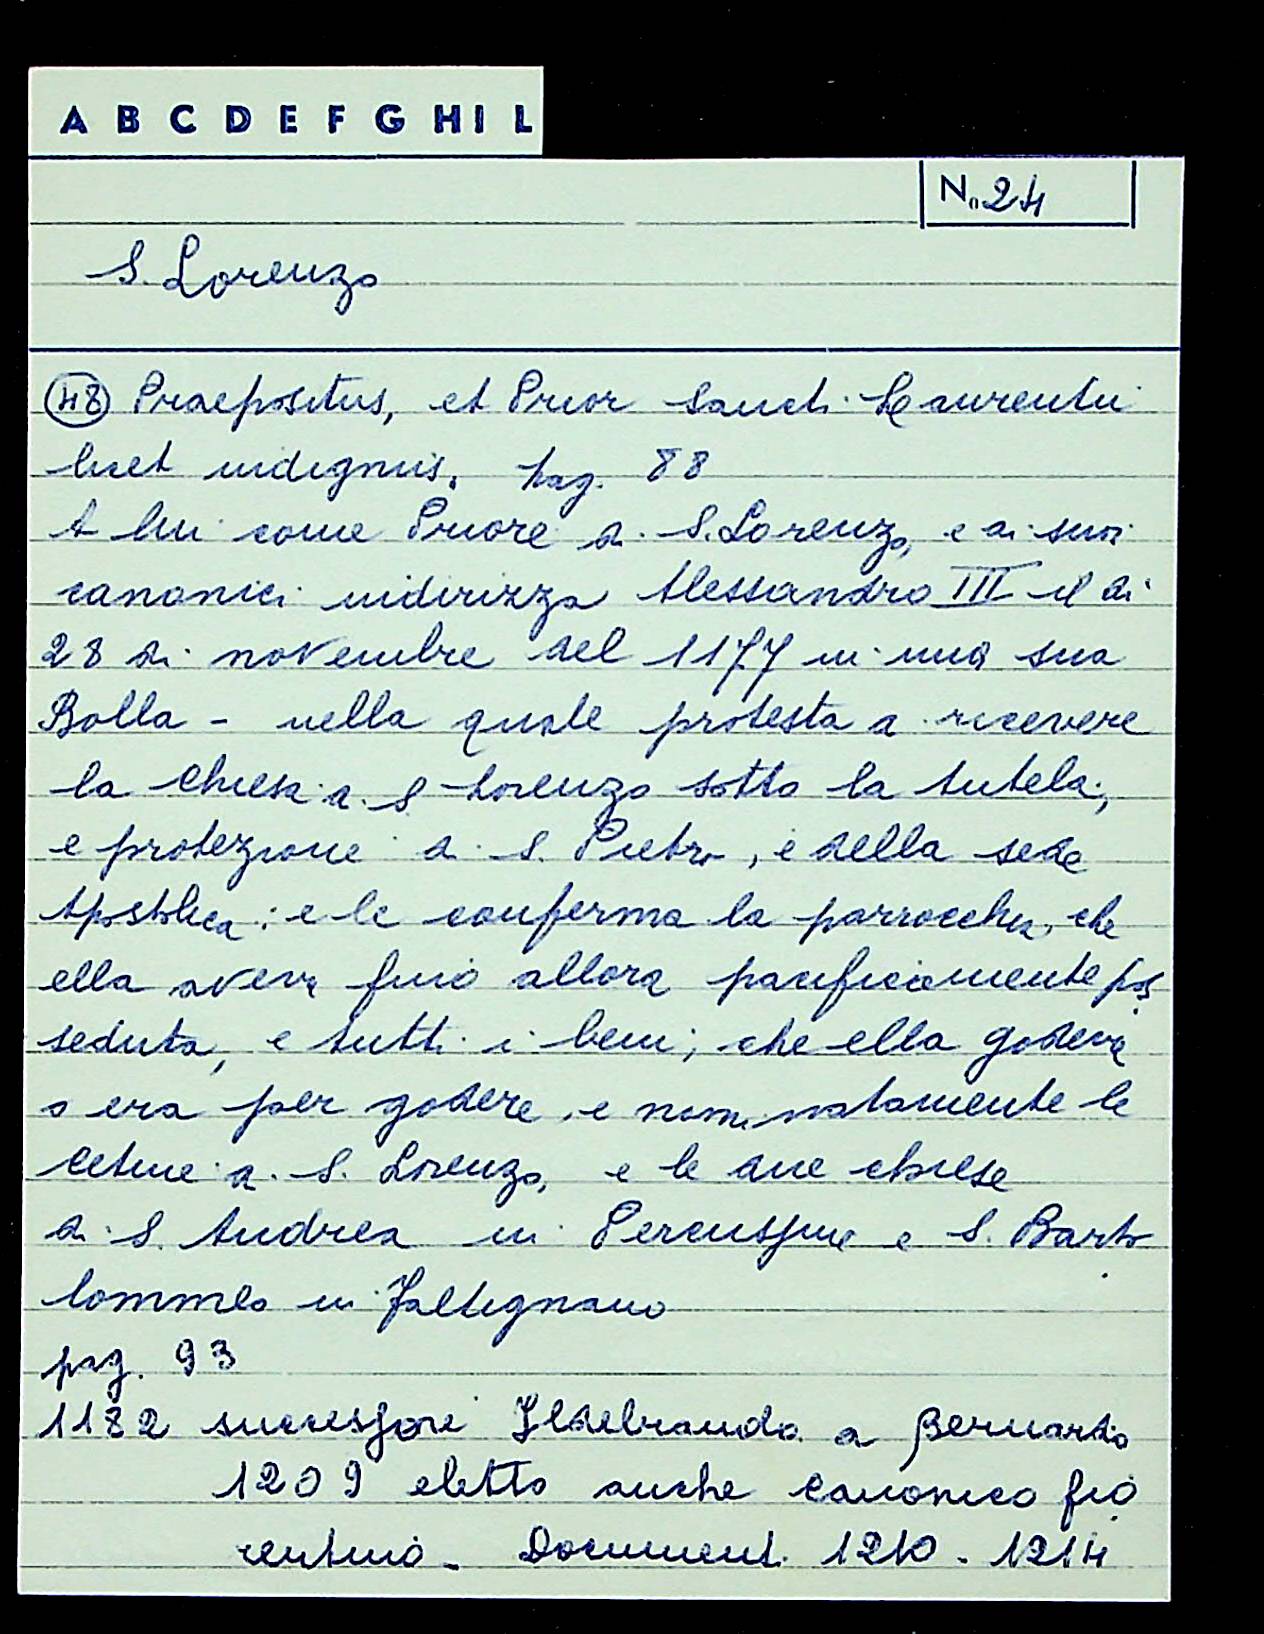 A B C D E F G H I L
N. 24
S. Lorenzo
(48) Praepositus, et Prior Sancti Laurentii
licet indignus. pag. 88
A lui come Priore di S. Lorenzo, e ai suoi
canonici indirizza Alessandro III il dì
28 di novembre del 1177 in una sua
Bolla - nella quale protesta di ricevere
la Chiesa di S Lorenzo sotto la tutela,
e protezione di S. Pietro, e della sede
Apostolica: e le conferma la parrocchia, che
ella aveva fino allora pacificamente pos
seduta, e tutti i beni; che ella godeva
o era per godere, e nominatamente le
Cetine di S. Lorenzo, e le due chiese
di S. Andrea in Percussine e S. Barto
lommeo in Faltignano
pag. 93
1182 successore Ildebrando a Bernardo
1209 eletto anche Canonico fio
rentino - Document. 1210 - 1214